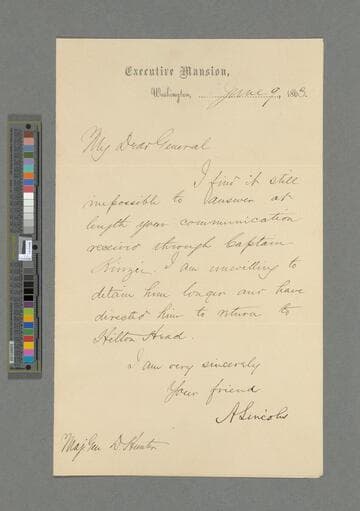 Executive Mansion,
Washington, June 9, 1863.
My Dear General
I find it still
impossible to answer at
length your communication
received through Captain
Kinzie. I am unwilling to
detain him longer and have
directed him to return to
Hilton Head.
I am very sincerely
Your friend
A Lincoln
Maj Gen D Hunter